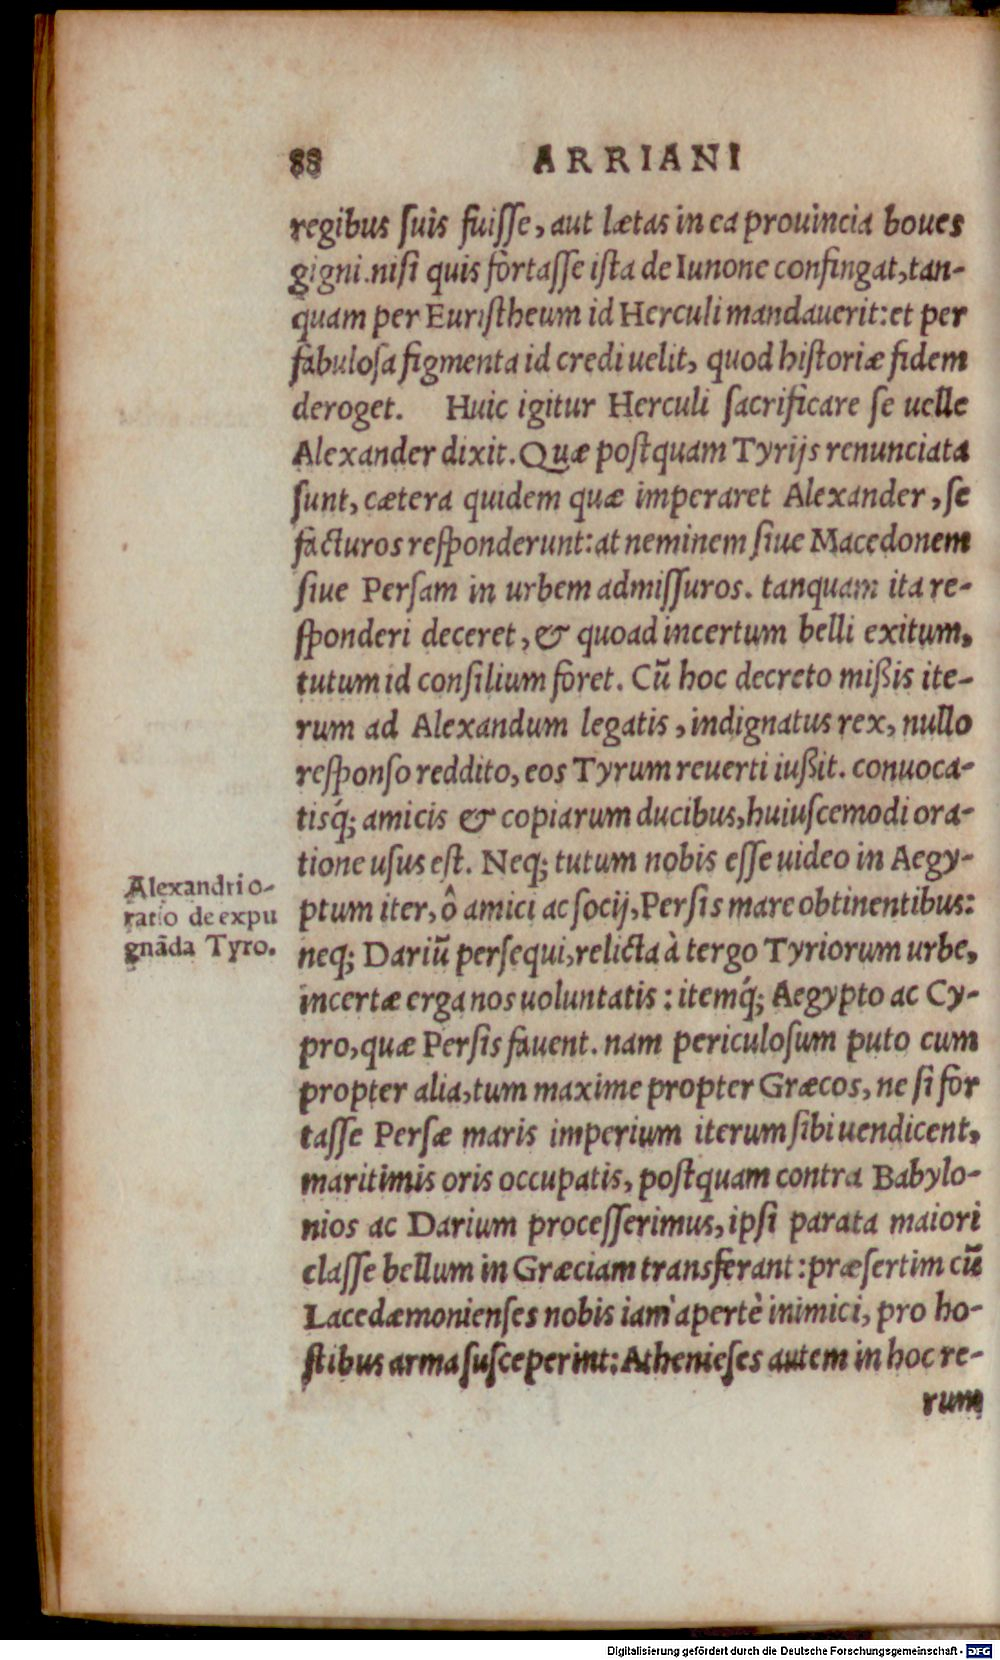 88 ARRIANI
regibus suis fuisse, aut lætas in ea prouincia boues
gigni. nisi quis fortasse ista de Iunone confingat, tan-
quam per Euristheum id Herculi mandauerit: et per
fabulosa figmenta id credi uelit, quod historiæ fidem
deroget. Huic igitur Herculi sacrificare se uelle
Alexander dixit. Quæ postquam Tyrijs renunciata
sunt, cætera quidem quæ imperaret Alexander, se
facturos responderunt: at neminem siue Macedonem
siue Persam in urbem admissuros. tanquam ita re-
sponderi deceret, & quoad incertum belli exitum,
tutum id consilium foret. Cū hoc decreto mißis ite-
rum ad Alexandum legatis, indignatus rex, nullo
responso reddito, eos Tyrum reuerti iußit. conuoca-
tisq́; amicis & copiarum ducibus, huiuscemodi ora-
tione usus est. Neq; tutum nobis esse uideo in Aegy-
ptum iter, ô amici ac socij, Persis mare obtinentibus:
neq; Dariū persequi, relicta à tergo Tyriorum urbe,
incertæ erga nos uoluntatis: itemq́; Aegypto ac Cy-
pro, quæ Persis fauent. nam periculosum puto cum
propter alia, tum maxime propter Græcos, ne si for
tasse Persæ maris imperium iterum sibi uendicent,
maritimis oris occupatis, postquam contra Babylo-
nios ac Darium processerimus, ipsi parata maiori
classe bellum in Græciam transferant: præsertim cū
Lacedæmonienses nobis iam apertè inimici, pro ho-
stibus arma susceperint: Athenieses autem in hoc re-
rum
Alexandri o-
ratio de expu
gnāda Tyro.
Digitalisierung gefördert durch die Deutsche Forschungsgemeinschaft - DFG